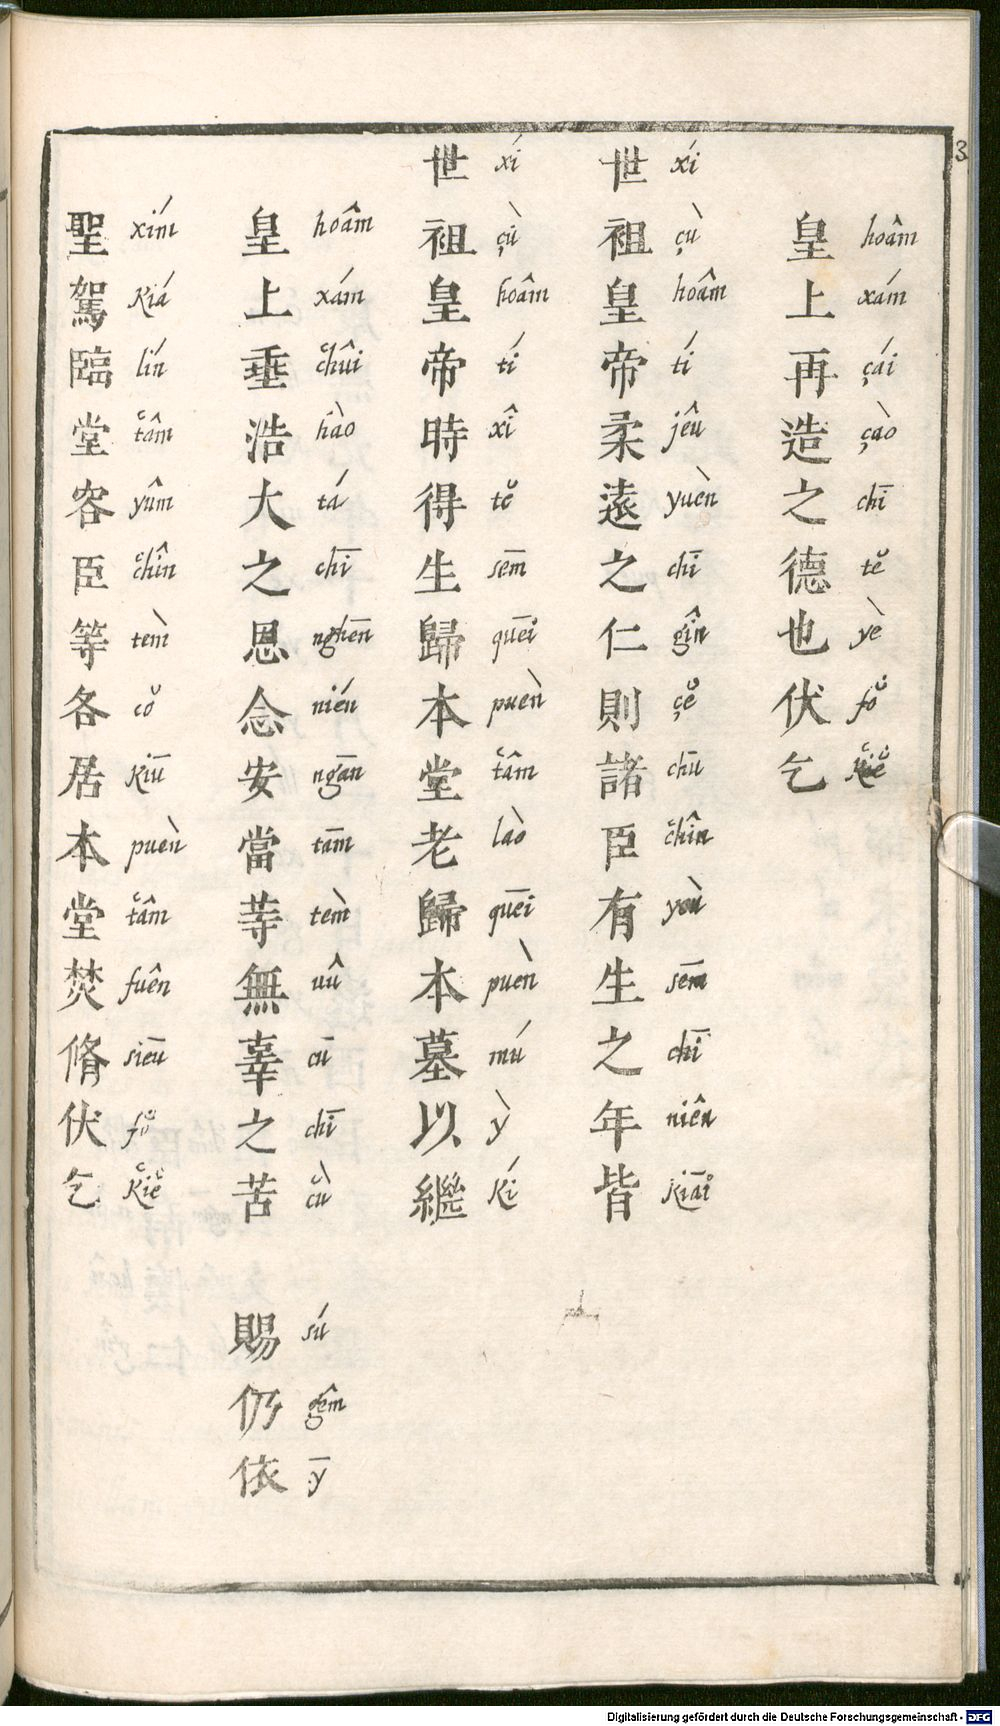 3
皇上再造之德也伏乞
hoâm xám çái çào chī tĕ yè fŏ kiĕ
世祖皇帝柔遠之仁則諸臣有生之年皆
xí çù hoâm tí jêu yuèn chī gîn çĕ chū chîn yeù sēm chī niên kiāi
世祖皇帝時得生歸本堂老歸本墓以繼
xí çù hoâm tí xî tĕ sēm quēi puèn tâm lào quēi puèn mú ỳ kí
皇上垂浩大之恩念安當䓁無辜之苦 賜仍依
hoâm xám chûi hào tá chī nghēn nién ngān tām tèm uû cū chī cù sú gêm ȳ
聖駕臨堂容臣等各居本堂焚脩伏乞
xím kiá lín tâm yûm chîn tèm cŏ kiū puèn tâm fuên siēu fŏ kiĕ
Digitalisierung gefördert durch die Deutsche Forschungsgemeinschaft - DFG